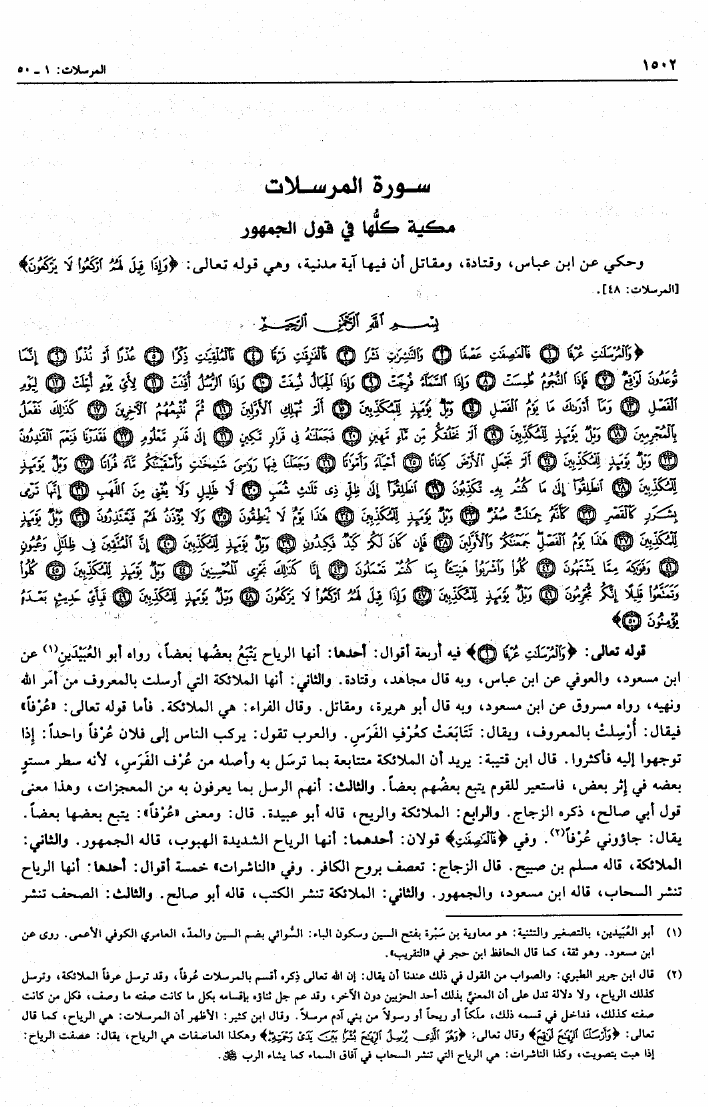 ١٥٠٢
المرسلات: ١ ـ ٥٠
سورة المرسلات
مكية كلُّها في قول الجمهور
وحكي عن ابن عباس، وقتادة، ومقاتل أن فيها آية مدنية، وهي قوله تعالى: ﴿وَإِذَا قِيلَ لَهُمُ ارْكَعُوا لَا يَرْكَعُونَ﴾
[المرسلات: ٤٨].
بِسْمِ اللَّهِ الرَّحْمَٰنِ الرَّحِيمِ
﴿وَالْمُرْسَلَاتِ عُرْفًا ۝١ فَالْعَاصِفَاتِ عَصْفًا ۝٢ وَالنَّاشِرَاتِ نَشْرًا ۝٣ فَالْفَارِقَاتِ فَرْقًا ۝٤ فَالْمُلْقِيَاتِ ذِكْرًا ۝٥ عُذْرًا أَوْ نُذْرًا ۝٦ إِنَّمَا
تُوعَدُونَ لَوَاقِعٌ ۝٧ فَإِذَا النُّجُومُ طُمِسَتْ ۝٨ وَإِذَا السَّمَاءُ فُرِجَتْ ۝٩ وَإِذَا الْجِبَالُ نُسِفَتْ ۝١٠ وَإِذَا الرُّسُلُ أُقِّتَتْ ۝١١ لِأَيِّ يَوْمٍ أُجِّلَتْ ۝١٢ لِيَوْمِ
الْفَصْلِ ۝١٣ وَمَا أَدْرَاكَ مَا يَوْمُ الْفَصْلِ ۝١٤ وَيْلٌ يَوْمَئِذٍ لِلْمُكَذِّبِينَ ۝١٥ أَلَمْ نُهْلِكِ الْأَوَّلِينَ ۝١٦ ثُمَّ نُتْبِعُهُمُ الْآخِرِينَ ۝١٧ كَذَلِكَ نَفْعَلُ
بِالْمُجْرِمِينَ ۝١٨ وَيْلٌ يَوْمَئِذٍ لِلْمُكَذِّبِينَ ۝١٩ أَلَمْ نَخْلُقْكُمْ مِنْ مَاءٍ مَهِينٍ ۝٢٠ فَجَعَلْنَاهُ فِي قَرَارٍ مَكِينٍ ۝٢١ إِلَى قَدَرٍ مَعْلُومٍ ۝٢٢ فَقَدَرْنَا فَنِعْمَ الْقَادِرُونَ
۝٢٣ وَيْلٌ يَوْمَئِذٍ لِلْمُكَذِّبِينَ ۝٢٤ أَلَمْ نَجْعَلِ الْأَرْضَ كِفَاتًا ۝٢٥ أَحْيَاءً وَأَمْوَاتًا ۝٢٦ وَجَعَلْنَا فِيهَا رَوَاسِيَ شَامِخَاتٍ وَأَسْقَيْنَاكُمْ مَاءً فُرَاتًا ۝٢٧ وَيْلٌ يَوْمَئِذٍ
لِلْمُكَذِّبِينَ ۝٢٨ انْطَلِقُوا إِلَى مَا كُنْتُمْ بِهِ تُكَذِّبُونَ ۝٢٩ انْطَلِقُوا إِلَى ظِلٍّ ذِي ثَلَاثِ شُعَبٍ ۝٣٠ لَا ظَلِيلٍ وَلَا يُغْنِي مِنَ اللَّهَبِ ۝٣١ إِنَّهَا تَرْمِي
بِشَرَرٍ كَالْقَصْرِ ۝٣٢ كَأَنَّهُ جِمَالَتٌ صُفْرٌ ۝٣٣ وَيْلٌ يَوْمَئِذٍ لِلْمُكَذِّبِينَ ۝٣٤ هَذَا يَوْمُ لَا يَنْطِقُونَ ۝٣٥ وَلَا يُؤْذَنُ لَهُمْ فَيَعْتَذِرُونَ ۝٣٦ وَيْلٌ يَوْمَئِذٍ
لِلْمُكَذِّبِينَ ۝٣٧ هَذَا يَوْمُ الْفَصْلِ جَمَعْنَاكُمْ وَالْأَوَّلِينَ ۝٣٨ فَإِنْ كَانَ لَكُمْ كَيْدٌ فَكِيدُونِ ۝٣٩ وَيْلٌ يَوْمَئِذٍ لِلْمُكَذِّبِينَ ۝٤٠ إِنَّ الْمُتَّقِينَ فِي ظِلَالٍ وَعُيُونٍ
۝٤١ وَفَوَاكِهَ مِمَّا يَشْتَهُونَ ۝٤٢ كُلُوا وَاشْرَبُوا هَنِيئًا بِمَا كُنْتُمْ تَعْمَلُونَ ۝٤٣ إِنَّا كَذَلِكَ نَجْزِي الْمُحْسِنِينَ ۝٤٤ وَيْلٌ يَوْمَئِذٍ لِلْمُكَذِّبِينَ ۝٤٥ كُلُوا
وَتَمَتَّعُوا قَلِيلًا إِنَّكُمْ مُجْرِمُونَ ۝٤٦ وَيْلٌ يَوْمَئِذٍ لِلْمُكَذِّبِينَ ۝٤٧ وَإِذَا قِيلَ لَهُمُ ارْكَعُوا لَا يَرْكَعُونَ ۝٤٨ وَيْلٌ يَوْمَئِذٍ لِلْمُكَذِّبِينَ ۝٤٩ فَبِأَيِّ حَدِيثٍ بَعْدَهُ
يُؤْمِنُونَ ۝٥٠﴾
قوله تعالى: ﴿وَالْمُرْسَلَاتِ عُرْفًا ۝١﴾ فيه أربعة أقوال: أحدها: أنها الرياح يَتْبَعُ بعضُها بعضاً، رواه أبو العُبَيْدَين(١) عن
ابن مسعود، والعوفي عن ابن عباس، وبه قال مجاهد، وقتادة. والثاني: أنها الملائكة التي أرسلت بالمعروف من أمر الله
ونهيه، رواه مسروق عن ابن مسعود، وبه قال أبو هريرة، ومقاتل. وقال الفراء: هي الملائكة. فأما قوله تعالى: «عُرْفاً»
فيقال: أُرسِلتْ بالمعروف، ويقال: تَتَابَعَتْ كعُرْفِ الفَرَسِ. والعرب تقول: يركب الناس إلى فلان عُرْفاً واحداً: إذا
توجهوا إليه فأكثروا. قال ابن قتيبة: يريد أن الملائكة متتابعة بما ترسَل به وأصله من عُرْف الفَرَسِ، لأنه سطر مستوٍ
بعضه في إثر بعض، فاستعير للقوم يتبع بعضُهم بعضاً. والثالث: أنهم الرسل بما يعرفون به من المعجزات، وهذا معنى
قول أبي صالح، ذكره الزجاج. والرابع: الملائكة والريح، قاله أبو عبيدة. قال: ومعنى «عُرْفاً»: يتبع بعضها بعضاً.
يقال: جاؤوني عُرْفاً(٢). وفي ﴿فَالْعَاصِفَاتِ﴾ قولان: أحدهما: أنها الرياح الشديدة الهبوب، قاله الجمهور. والثاني:
الملائكة، قاله مسلم بن صبيح. قال الزجاج: تعصف بروح الكافر. وفي «الناشرات» خمسة أقوال: أحدها: أنها الرياح
تنشر السحاب، قاله ابن مسعود، والجمهور. والثاني: الملائكة تنشر الكتب، قاله أبو صالح. والثالث: الصحف تنشر
(١) أبو العُبَيدين، بالتصغير والتثنية: هو معاوية بن سَبْرة بفتح السين وسكون الباء: السُّوائي بضم السين والمدّ، العامري الكوفي الأعمى. روى عن
ابن مسعود. وهو ثقة، كما قال الحافظ ابن حجر في «التقريب».
(٢) قال ابن جرير الطبري: والصواب من القول في ذلك عندنا أن يقال: إن الله تعالى ذِكره أقسم بالمرسلات عُرفاً، وقد ترسل عرفاً الملائكة، وترسل
كذلك الرياح، ولا دلالة تدل على أن المعنيَّ بذلك أحد الحزبين دون الآخر، وقد عم جل ثناؤه بإقسامه بكل ما كانت صفته ما وصف، فكل من كانت
صفته كذلك، فداخل في قسمه ذلك، ملَكاً أو ريحاً أو رسولاً من بني آدم مرسلاً. وقال ابن كثير: الأظهر أن المرسلات: هي الرياح، كما قال
تعالى: ﴿وَأَرْسَلْنَا الرِّيَاحَ لَوَاقِحَ﴾ وقال تعالى: ﴿وَهُوَ الَّذِي يُرْسِلُ الرِّيَاحَ بُشْرًا بَيْنَ يَدَيْ رَحْمَتِهِ﴾ وهكذا العاصفات هي الرياح، يقال: عصفت الرياح:
إذا هبت بتصويت، وكذا الناشرات: هي الرياح التي تنشر السحاب في آفاق السماء كما يشاء الرب